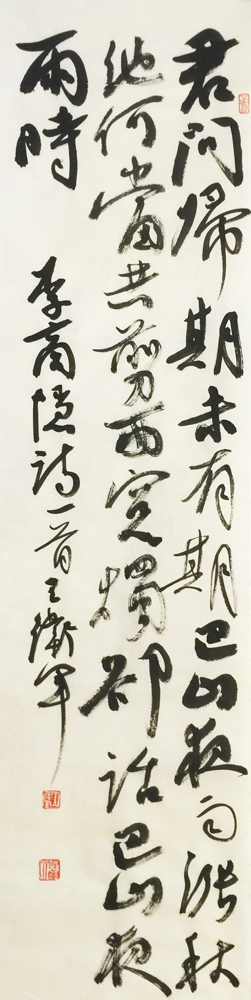 君問歸期未有期巴山夜雨漲秋
池何當共剪西窗燭卻話巴山夜
雨時
李商隱詩一首王衛軍